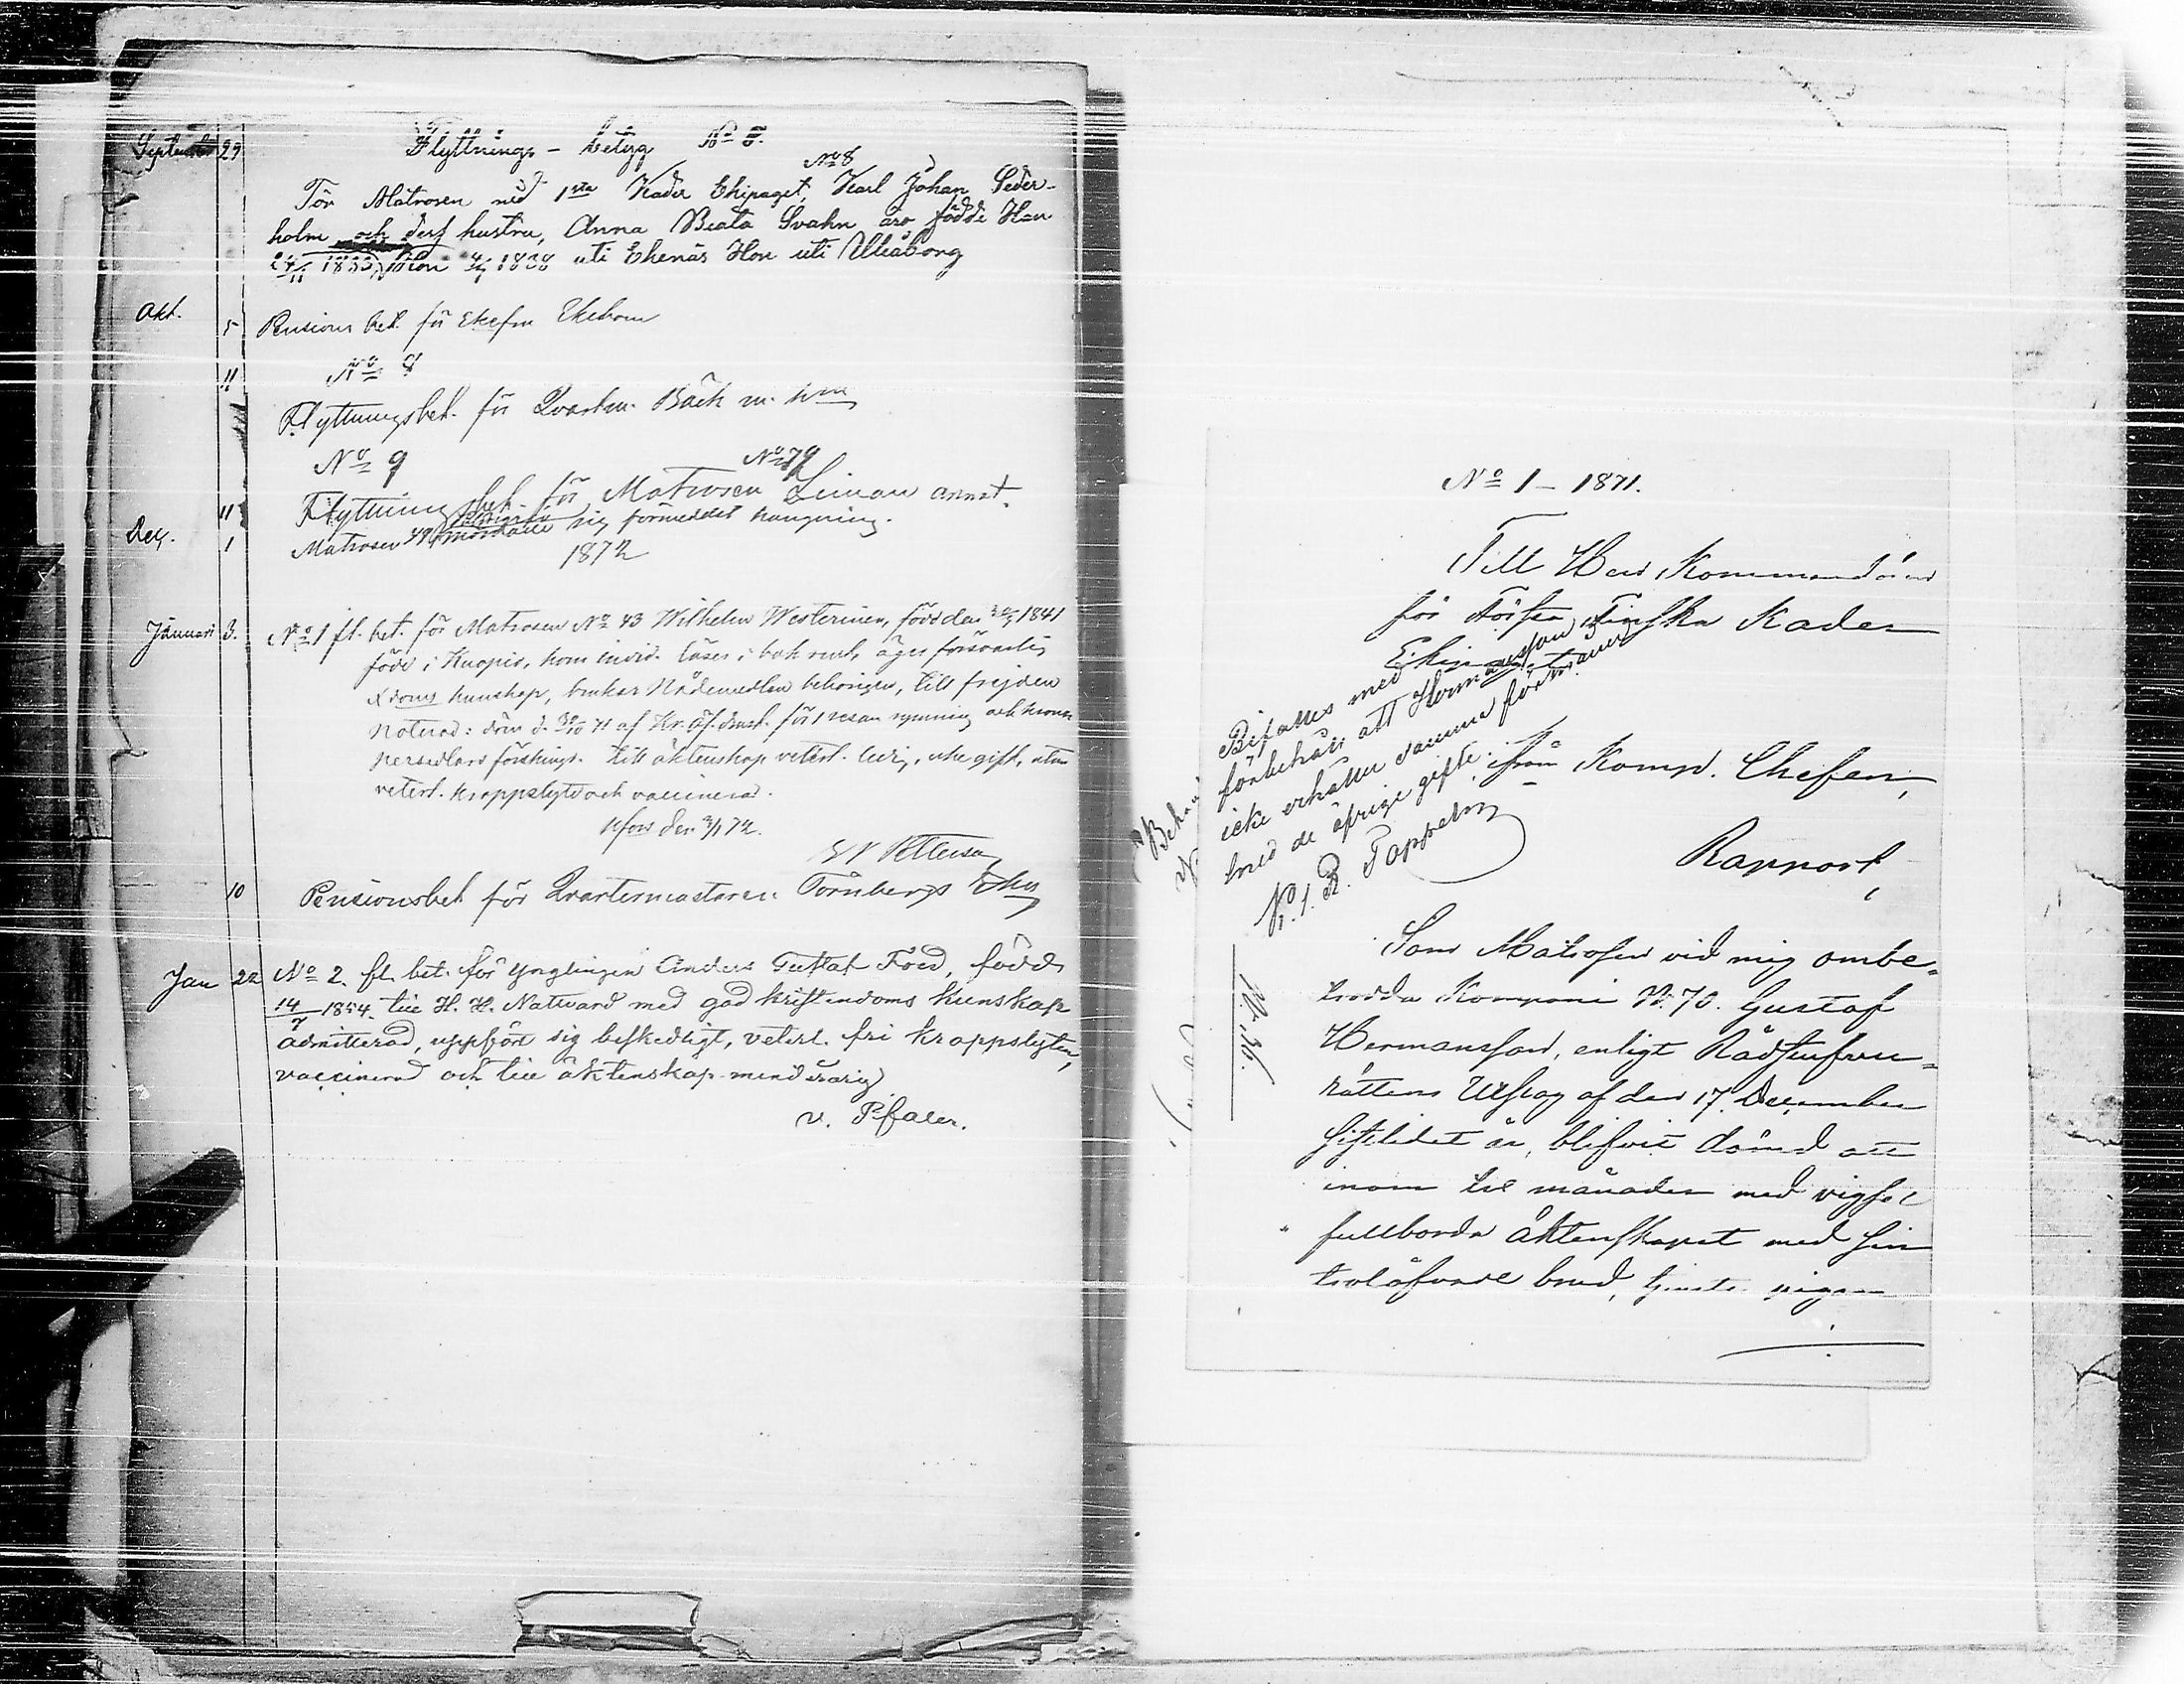 September 29 Flyttnings-betyg No 7.
No 8
För Matrosen vid 1sta Kader Ekipaget, Karl Johan Seder-
holm och dess hustru, Anna Beata Svahn äro födde Han
24/11 1833, Hon 1838 uti Ekenäs Hon uti Uleåborg
Okt. 5 Pensions bet. för Ekebom
11 No 8
Flyttningsbet. för Qvarterm. Bäck m. hu
No 9 No 79
11 Flyttningsbet. för Matrosen Liman
Dec. 1 Matrosen 49 sig förmedelst hängning.
1872
Januari 3. No 1 fl. bet. för Matrosen No 43 Wilhelm Westerinen, född den 1841
född i Kuopio, kom invid. läser i bok rent, äger försvarlig
Xdoms kunskap, brukar Nådemedlen behörigen, till frejden
noterad: döm d. 30/10 71 af Kr. Öf. domst. för 1 resan rymning och krono
persedlars förskingr. Till äktenskap veterl. ledig, icke gift, utan
veterl. kroppslyte och vaccinerad.
Hfors den 3/1 72.
Petterson
10 Pensionsbet för Qvartermästaren Törnbergs Enka
Jan 22 No 2. fl. bet. för Ynglingen Anders Gustaf Foed, född
14/7 1854. till H. H. Nattvard med god kristendoms kunskap
admitterad, uppfört sig beskedligt, veterl. fri kroppslyten,
vaccinerad och till äktenskap minderårig
v. Pfaler.
No 1 – 1871.
Till Herr Kommendören
för Första Finska Kader
Ekipaget
ifrån Komp. Chefen,
Rapport,
Bifalles med
förbehåll att Hermansson
icke erhåller samma förmåner
med de öfrige gifte.
N. 1. R. Toppelius
No 36.
Som Matrosen vid mig ombe-
trodda Kompani No 70. Gustaf
Hermansson, enligt Rådstufvu-
rättens Utslag af den 17. December
sistlidet år, blifvit dömd att
inom tre månader med vigsel
fullborda äktenskapet med sin
trolofvade brud, tjenste pigan